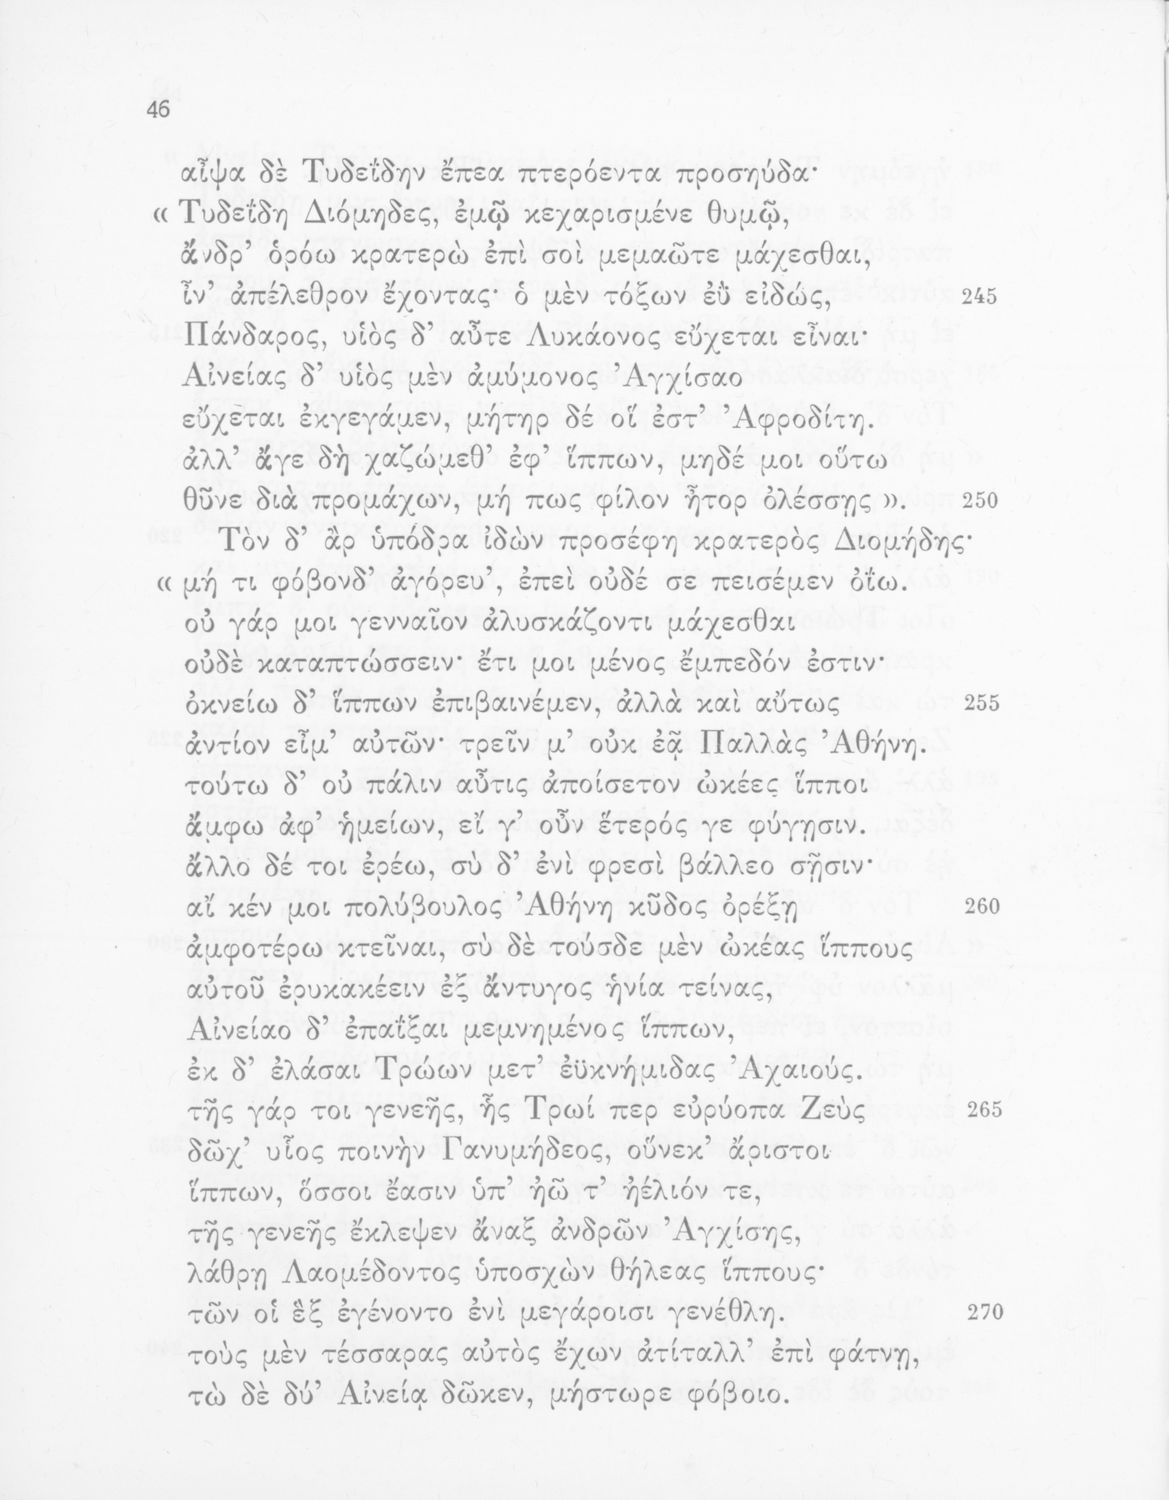 46
αἶψα δὲ Τυδεΐδην ἔπεα πτερόεντα προσηύδα·
« Τυδεΐδη Διόμηδες, ἐμῷ κεχαρισμένε θυμῷ,
ἄνδρ’ ὁρόω κρατερὼ ἐπὶ σοὶ μεμαῶτε μάχεσθαι,
ἶν’ ἀπέλεθρον ἔχοντας· ὁ μὲν τόξων ἐῢ εἰδώς, 245
Πάνδαρος, υἱὸς δ’ αὖτε Λυκάονος εὔχεται εἶναι·
Αἰνείας δ’ υἱὸς μὲν ἀμύμονος Ἀγχίσαο
εὔχεται ἐκγεγάμεν, μήτηρ δέ οἵ ἐστ’ Ἀφροδίτη.
ἀλλ’ ἄγε δὴ χαζώμεθ’ ἐφ’ ἵππων, μηδέ μοι οὕτω
θῦνε διὰ προμάχων, μή πως φίλον ἦτορ ὀλέσσῃς ». 250
Τὸν δ’ ἂρ ὑπόδρα ἰδὼν προσέφη κρατερὸς Διομήδης·
« μή τι φόβονδ’ ἀγόρευ’, ἐπεὶ οὐδέ σε πεισέμεν ὀΐω.
οὐ γάρ μοι γενναῖον ἀλυσκάζοντι μάχεσθαι
οὐδὲ καταπτώσσειν· ἔτι μοι μένος ἔμπεδόν ἐστιν·
ὀκνείω δ’ ἵππων ἐπιβαινέμεν, ἀλλὰ καὶ αὔτως 255
ἀντίον εἶμ’ αὐτῶν· τρεῖν μ’ οὐκ ἐᾷ Παλλὰς Ἀθήνη.
τούτω δ’ οὐ πάλιν αὖτις ἀποίσετον ὠκέες ἵπποι
ἄμφω ἀφ’ ἡμείων, εἴ γ’ οὖν ἕτερός γε φύγῃσιν.
ἄλλο δέ τοι ἐρέω, σὺ δ’ ἐνὶ φρεσὶ βάλλεο σῇσιν·
αἴ κέν μοι πολύβουλος Ἀθήνη κῦδος ὀρέξῃ 260
ἀμφοτέρω κτεῖναι, σὺ δὲ τούσδε μὲν ὠκέας ἵππους
αὐτοῦ ἐρυκακέειν ἐξ ἄντυγος ἡνία τείνας,
Αἰνείαο δ’ ἐπαΐξαι μεμνημένος ἵππων,
ἐκ δ’ ἐλάσαι Τρώων μετ’ ἐϋκνήμιδας Ἀχαιούς.
τῆς γάρ τοι γενεῆς, ἧς Τρωί περ εὐρύοπα Ζεὺς 265
δῶχ’ υἷος ποινὴν Γανυμήδεος, οὕνεκ’ ἄριστοι
ἵππων, ὅσσοι ἔασιν ὑπ’ ἠῶ τ’ ἠέλιόν τε,
τῆς γενεῆς ἔκλεψεν ἄναξ ἀνδρῶν Ἀγχίσης,
λάθρῃ Λαομέδοντος ὑποσχὼν θήλεας ἵππους·
τῶν οἱ ἓξ ἐγένοντο ἐνὶ μεγάροισι γενέθλη. 270
τοὺς μὲν τέσσαρας αὐτὸς ἔχων ἀτίταλλ’ ἐπὶ φάτνῃ,
τὼ δὲ δύ’ Αἰνείᾳ δῶκεν, μήστωρε φόβοιο.